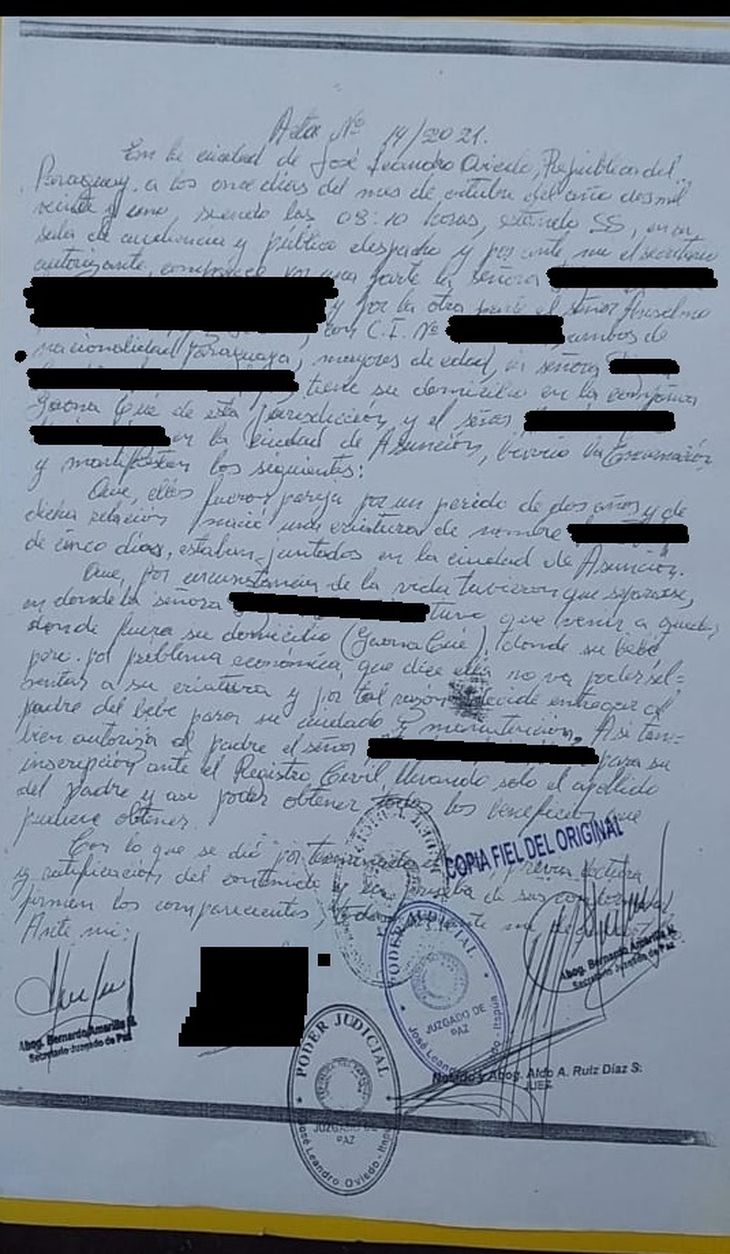 Acta Nº 14/2021.
En la ciudad de José Leandro Oviedo, República del
Paraguay, a los once días del mes de octubre del año dos mil
veinte y uno, siendo las 08:10 horas, estando SS, en su
sala de audiencia y público despacho y por ante mi el secretario
autorizante, comparece por una parte la señora
y por la otra parte el señor Anselmo
con C.I. Nº ambos de
nacionalidad Paraguaya, mayores de edad, la señora
tiene su domicilio en la compañia
Gaona Cué de esta jurisdiccion y el señor
en la ciudad de Asunción, barrio
y manifiestan los siguientes:
Que, ellos fueron pareja por un perido de dos años y de
dicha relación nació una criatura de nombre
de cinco días, estaban juntados en la ciudad de Asunción.
Que, por circunstancia de la vida tuvieron que separarse,
en donde la señora tuvo que venir a quedar
donde fuera su domicilio (Gaona Cué), donde su bebé
pero por problema económica, que dice ella no va poder
a su criatura y por tal razón decide entregar al
padre del bebe para su cuidado y manutención. Asi tam-
bien autoriza al padre el señor para su
inscripción ante el Registro Civil llevando solo el apellido
del padre y asi poder obtener todos los beneficios que
pudiere obtener.
Con lo que se dió por terminado el previa lectura
y ratificación del contenido y en prueba de sus conformidad
firman los comparecientes, todo
Ante mi:
COPIA FIEL DEL ORIGINAL
Abog. Bernardo Amarilla R.
Secretario Juzgado de Paz
PODER JUDICIAL
JUZGADO DE
PAZ
José Leandro Oviedo - Itapúa
Abog. Bernardo Amarilla R.
Secretario Juzgado de Paz
Notario y Abog. Aldo A. Ruiz Díaz S.
JUEZ
PODER JUDICIAL
JUZGADO DE
PAZ
José Leandro Oviedo - Itapúa